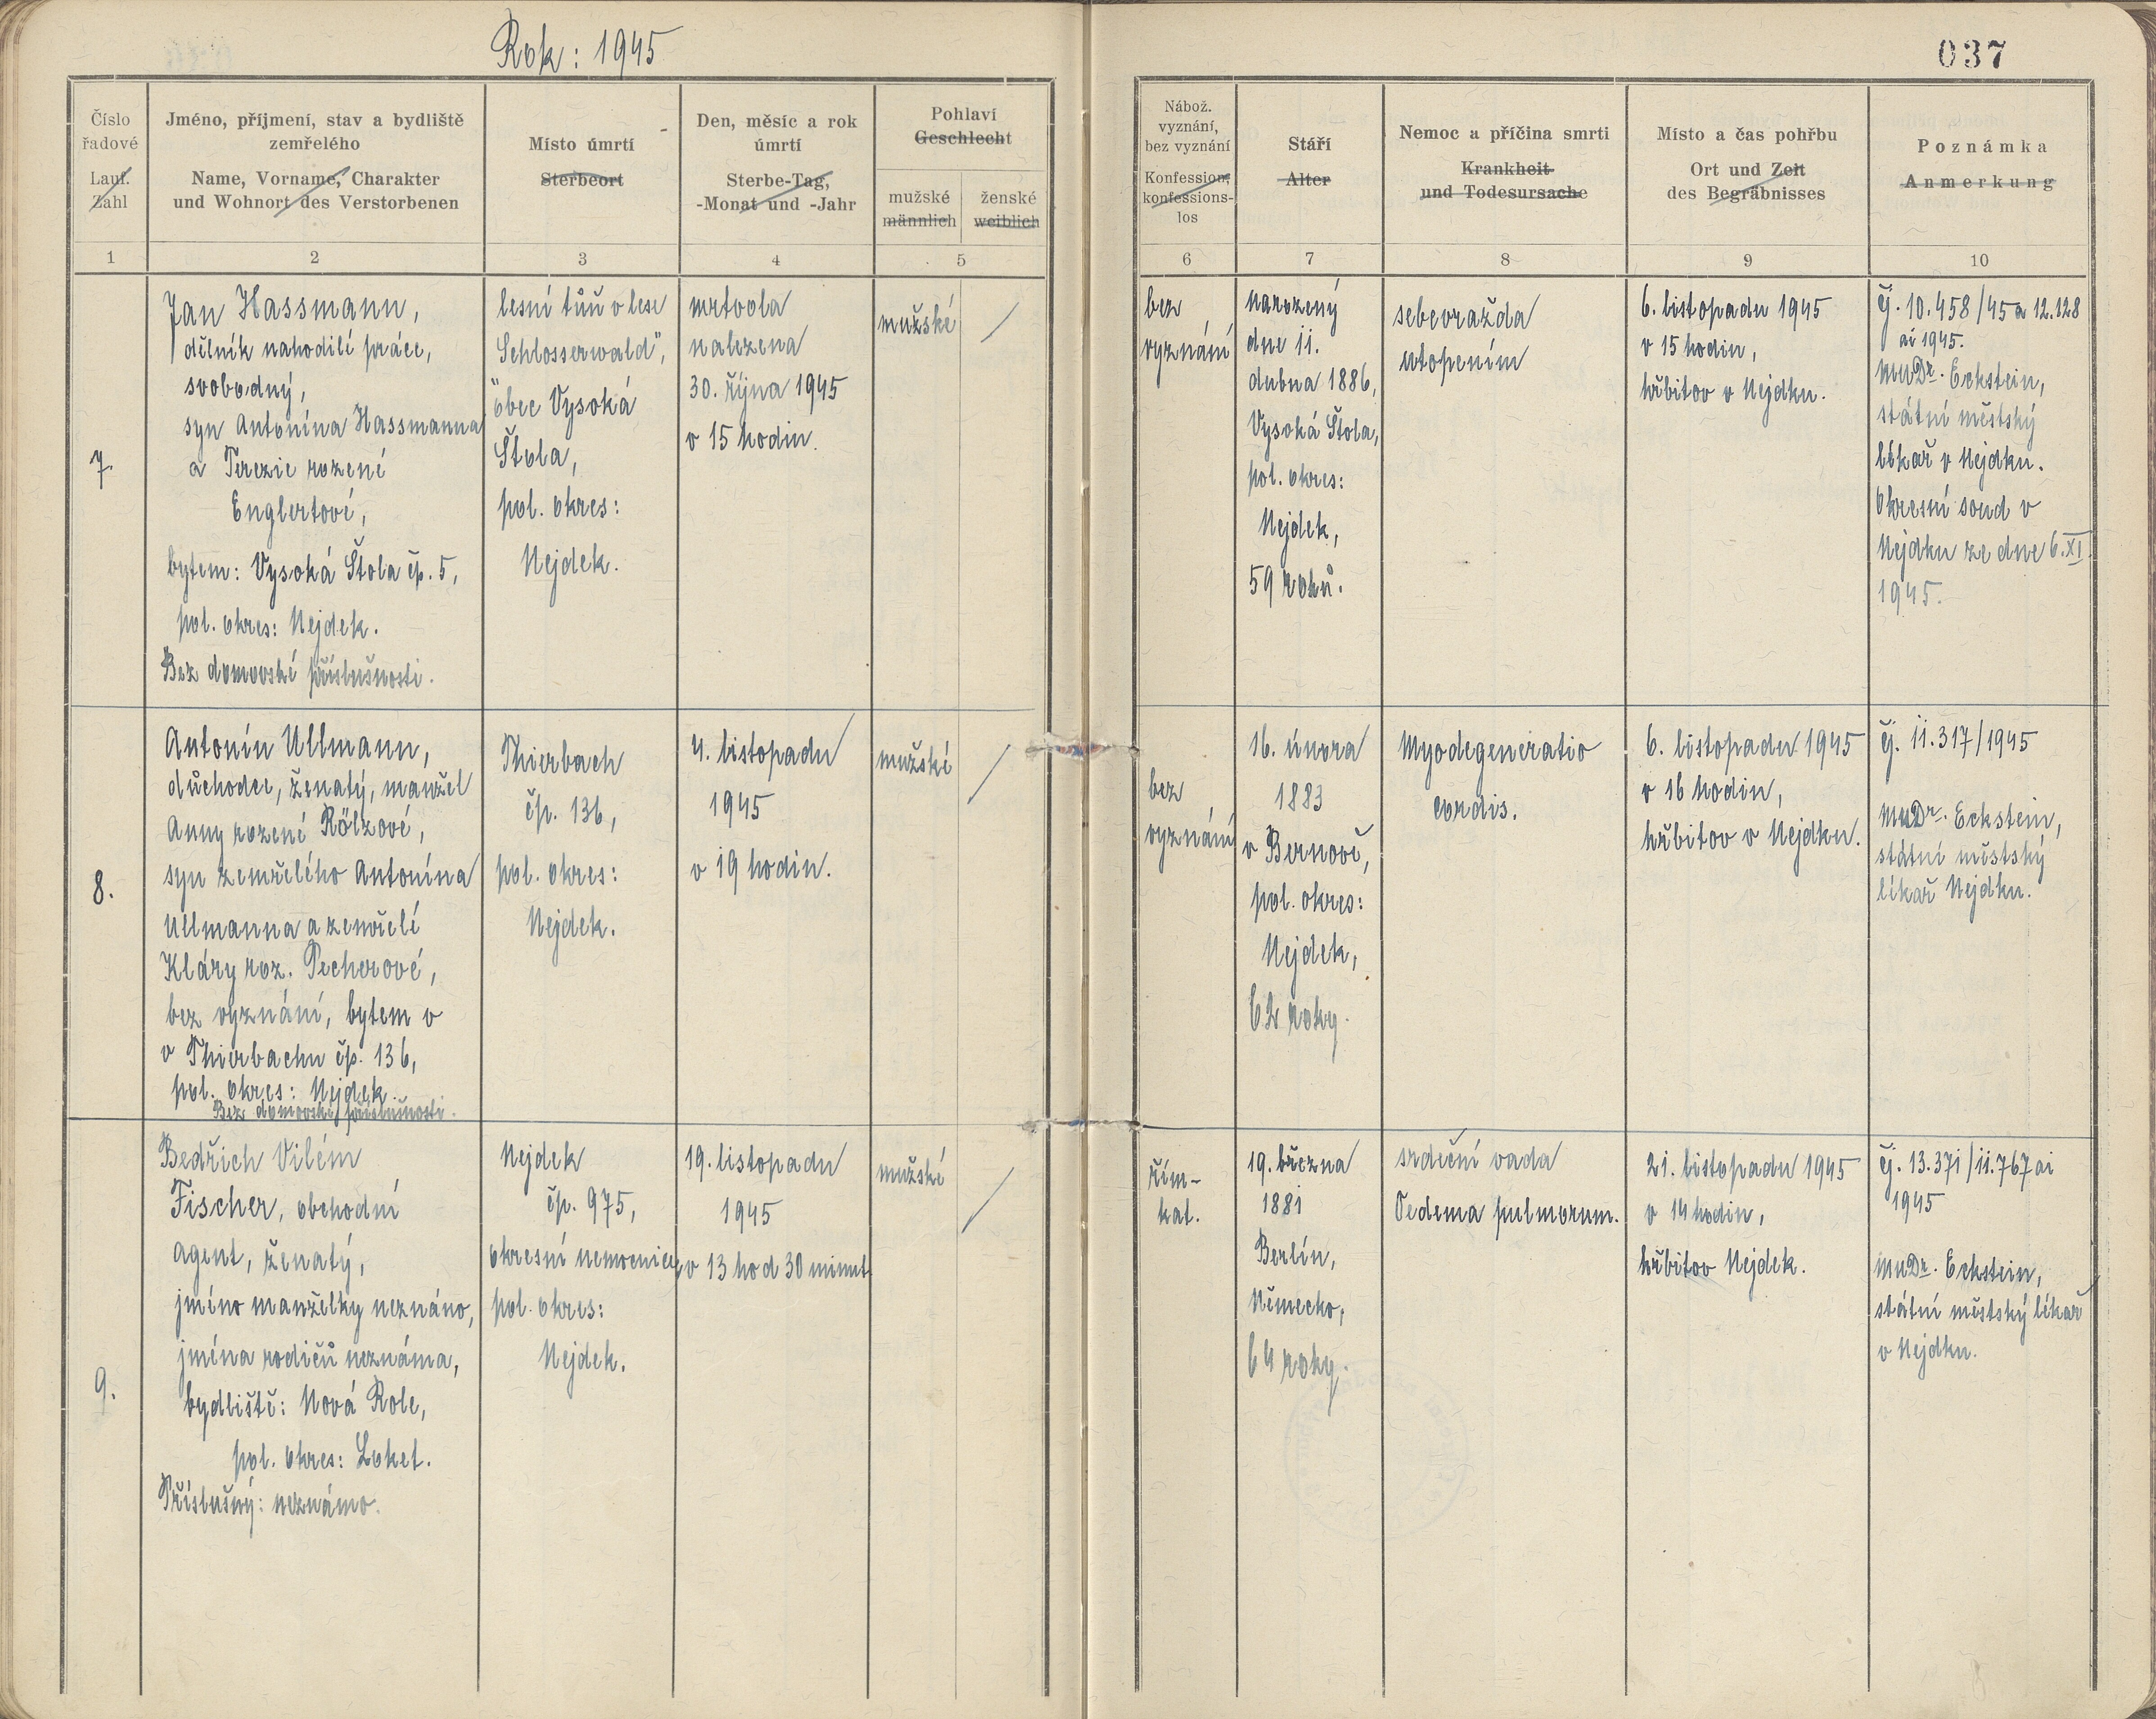 Rok: 1945
037
Číslo řadové
Lauf. Zahl
Jméno, příjmení, stav a bydliště zemřelého
Name, Vorname, Charakter und Wohnort des Verstorbenen
Místo úmrtí
Sterbeort
Den, měsíc a rok úmrtí
Sterbe-Tag, -Monat und -Jahr
Pohlaví
Geschlecht
mužské
männlich
ženské
weiblich
Nábož. vyznání, bez vyznání
Konfession, konfessions-los
Stáří
Alter
Nemoc a příčina smrti
Krankheit und Todesursache
Místo a čas pohřbu
Ort und Zeit des Begräbnisses
Poznámka
Anmerkung
1 2 3 4 5 6 7 8 9 10
7.
Jan Hassmann,
dělník nahodilé práce,
svobodný,
syn Antonína Hassmanna
a Terezie rozené
Englertové,
bytem: Vysoká Štola čp. 5,
pol. okres: Nejdek.
Bez domovské příslušnosti.
lesní tůň v lese
"Schlosserwald",
obec Vysoká
Štola,
pol. okres:
Nejdek.
mrtvola
nalezena
30. října 1945
v 15 hodin.
mužské
bez
vyznání
narozený
dne 11.
dubna 1886,
Vysoká Štola,
pol. okres:
Nejdek,
59 roků.
sebevražda
utopením
6. listopadu 1945
v 15 hodin,
hřbitov v Nejdku.
Čj. 10.458/45 a 12.128
ai 1945.
MuDr. Eckstein,
státní městský
lékař v Nejdku.
Okresní soud v
Nejdku ze dne 6. XI.
1945.
8.
Antonín Ullmann,
důchodce, ženatý, manžel
Anny rozené Rölzové,
syn zemřelého Antonína
Ullmanna a zemřelé
Kláry roz. Pecherové,
bez vyznání, bytem v
v Thierbachu čp. 136,
pol. okres: Nejdek.
Bez domovské příslušnosti.
Thierbach
čp. 136,
pol. okres:
Nejdek.
4. listopadu
1945
v 19 hodin.
mužské
bez
vyznání
16. února
1883
v Bernově,
pol. okres:
Nejdek,
62 roky.
Myodegeneratio
cordis.
6. listopadu 1945
v 16 hodin,
hřbitov v Nejdku.
Čj. 11.317/1945
MuDr. Eckstein,
státní městský
lékař Nejdku.
9.
Bedřich Vilém
Fischer, obchodní
agent, ženatý,
jméno manželky neznámo,
jména rodičů neznáma,
bydliště: Nová Role,
pol. okres: Loket.
Příslušný: neznámo.
Nejdek
čp. 975,
okresní nemocnice,
pol. okres:
Nejdek.
19. listopadu
1945
v 13 hod 30 minut
mužské
řím-
kat.
19. března
1881
Berlín,
Německo,
64 roky.
srdeční vada
Oedema pulmorum.
21. listopadu 1945
v 14 hodin,
hřbitov Nejdek.
Čj. 13.371/11.767 ai
1945
MuDr. Eckstein,
státní městský lékař
v Nejdku.